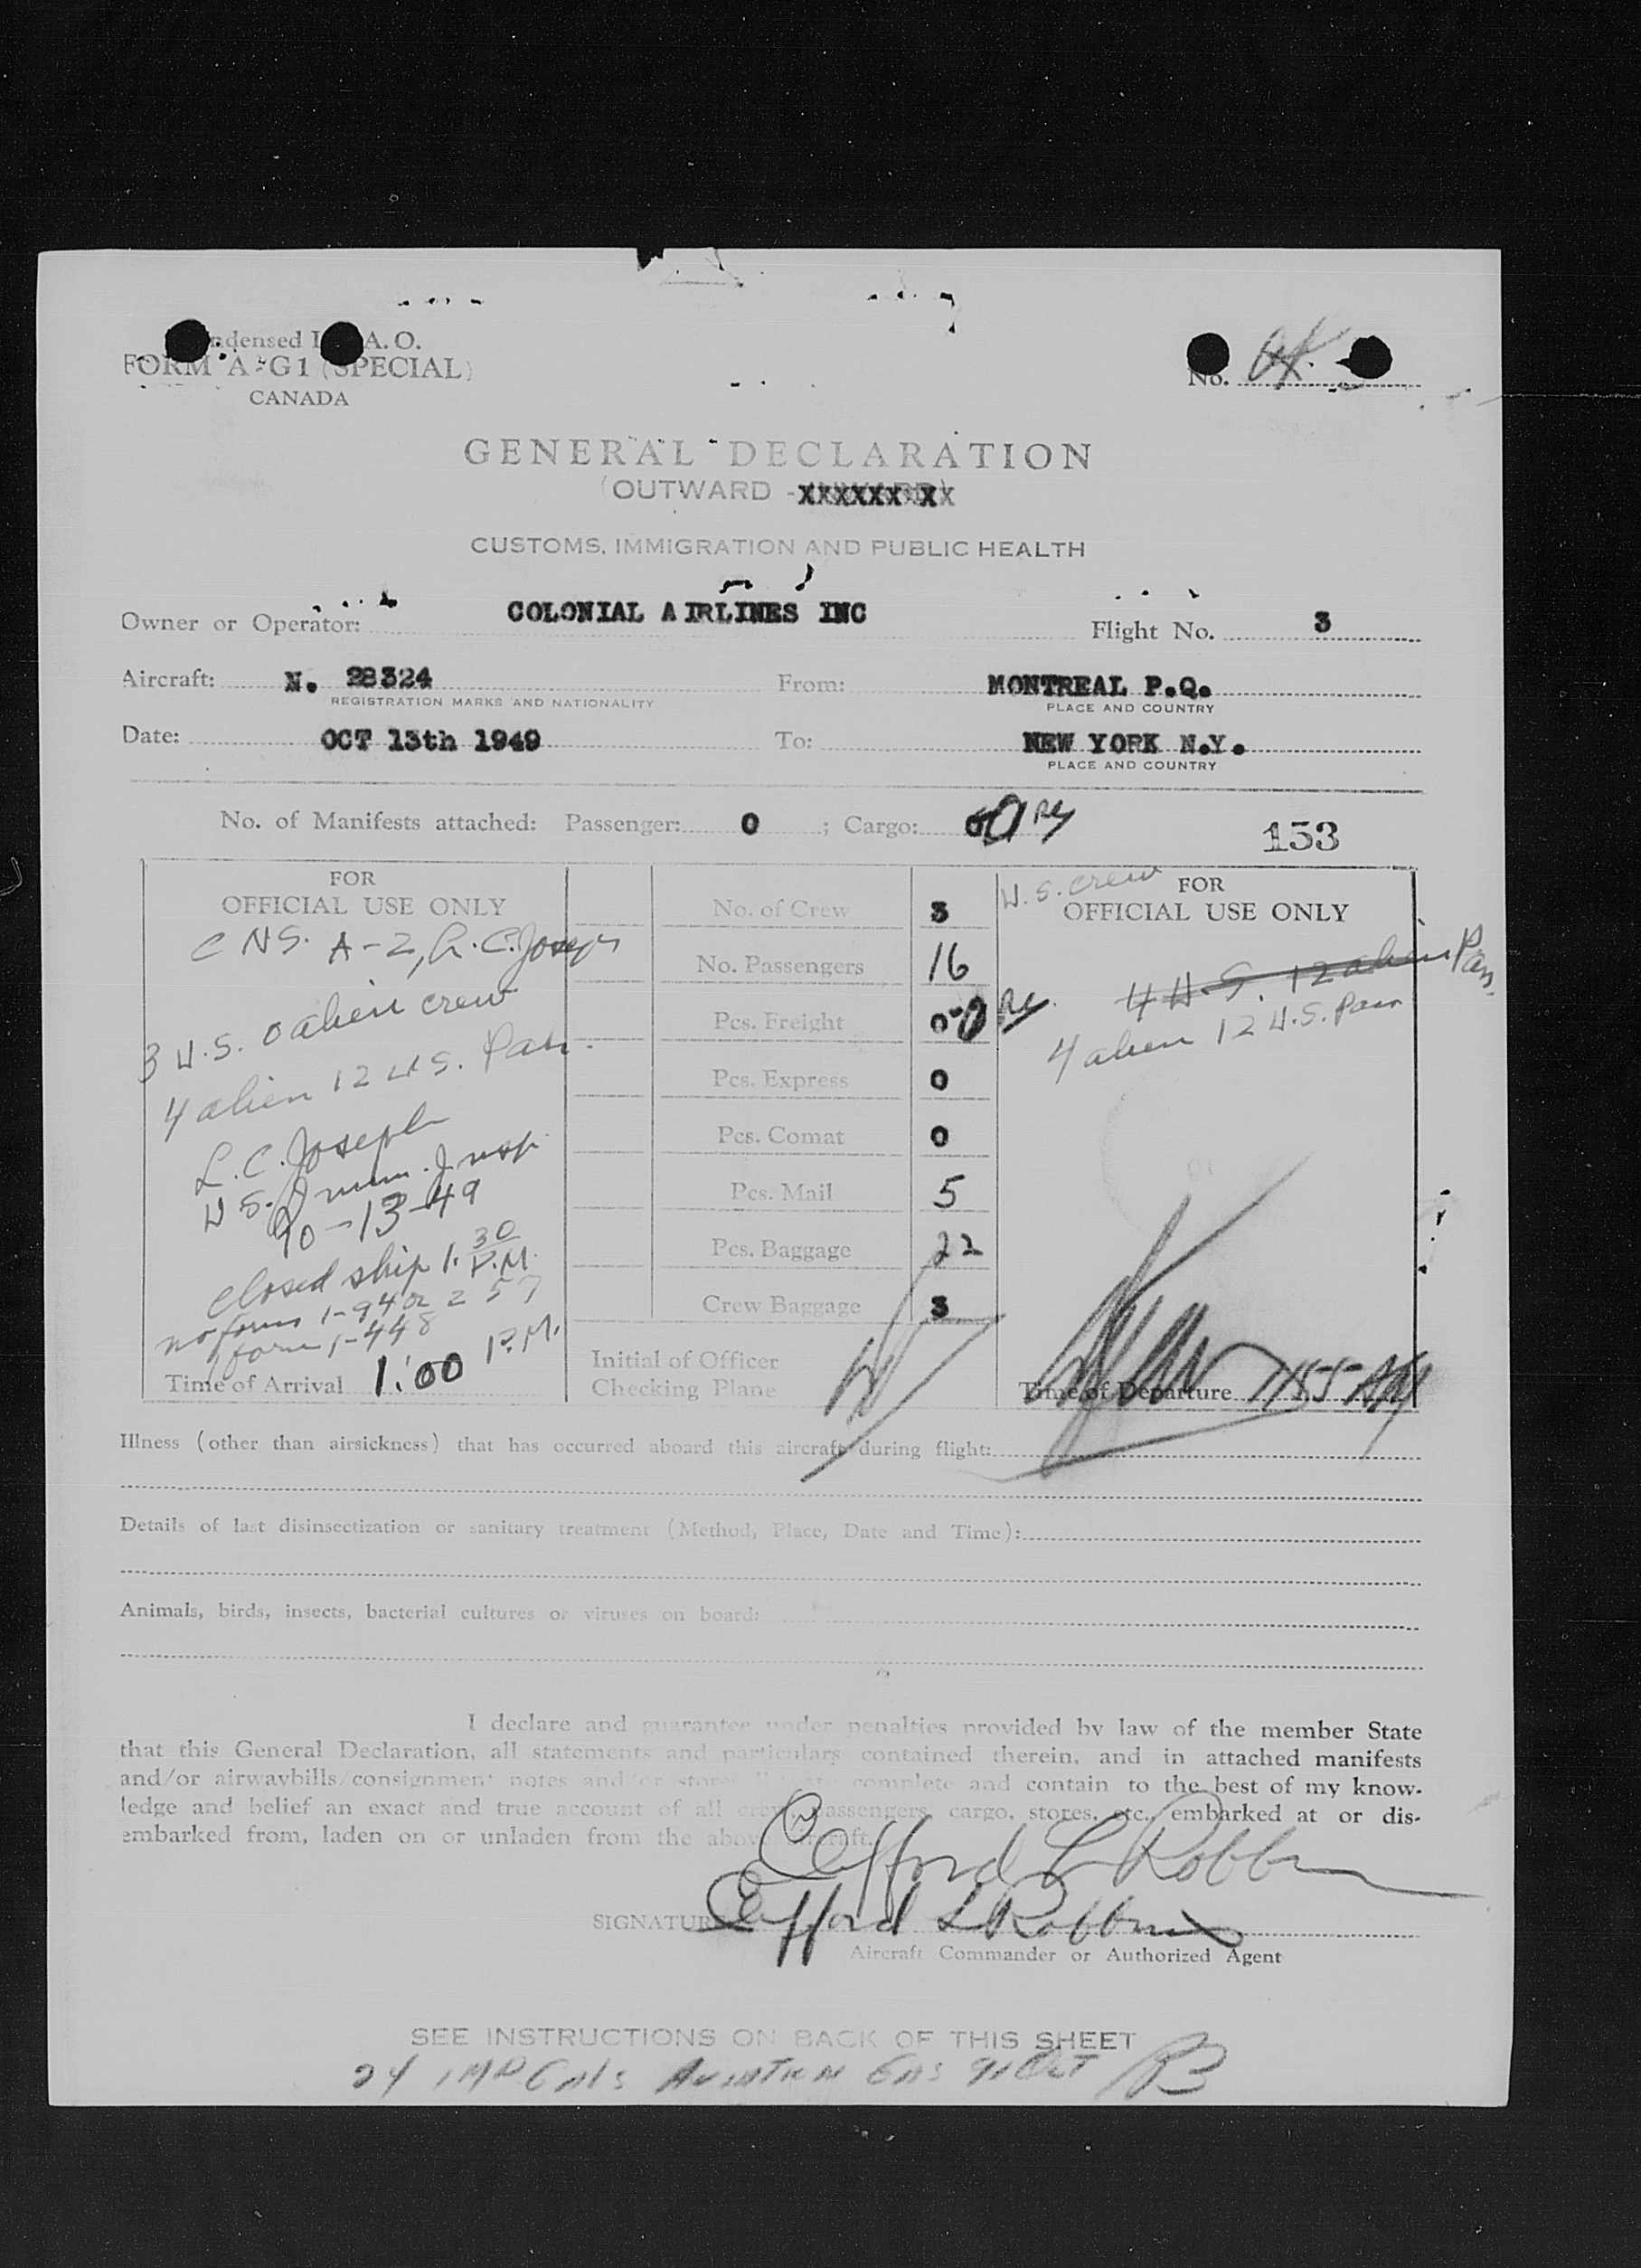 FORM A-G1 (SPECIAL)
CANADA
No. OK.
GENERAL DECLARATION
(OUTWARD - XXXXXX XX
CUSTOMS, IMMIGRATION AND PUBLIC HEALTH
Owner or Operator: COLONIAL AIRLINES INC Flight No. 3
Aircraft: N. 28324 From: MONTREAL P.Q.
REGISTRATION MARKS AND NATIONALITY PLACE AND COUNTRY
Date: OCT 13th 1949 To: NEW YORK N.Y.
PLACE AND COUNTRY
No. of Manifests attached: Passenger: 0 ; Cargo: 0
153
FOR
OFFICIAL USE ONLY
C N S. A-2, L.C. Joseph
3 U.S. 0 alien crew
4 alien 12 U.S. Pass.
L.C. Joseph
U.S. Immn. Insp.
10-13-49
closed ship 1.30 P.M.
no forms 1-94 or 257
form 1-448
Time of Arrival 1:00 P.M.
No. of Crew 3
No. Passengers 16
Pcs. Freight 0
Pcs. Express 0
Pcs. Comat 0
Pcs. Mail 5
Pcs. Baggage 22
Crew Baggage 3
Initial of Officer
Checking Plane
U.S. crew
FOR
OFFICIAL USE ONLY
4 U.S. 12 alien Pass.
4 alien 12 U.S. Pass
Time of Departure 1155 AM
Illness (other than airsickness) that has occurred aboard this aircraft during flight:
Details of last disinsectization or sanitary treatment (Method, Place, Date and Time):
Animals, birds, insects, bacterial cultures or viruses on board:
I declare and guarantee under penalties provided by law of the member State
that this General Declaration, all statements and particulars contained therein, and in attached manifests
and/or airwaybills/consignment notes and/or stores complete and contain to the best of my know-
ledge and belief an exact and true account of all crew, passengers, cargo, stores, etc., embarked at or dis-
embarked from, laden on or unladen from the above aircraft.
Clifford L Robbins
SIGNATURE Clifford L Robbins
Aircraft Commander or Authorized Agent
SEE INSTRUCTIONS ON BACK OF THIS SHEET
24 IMP GALS AVIATION GAS 91 OCT